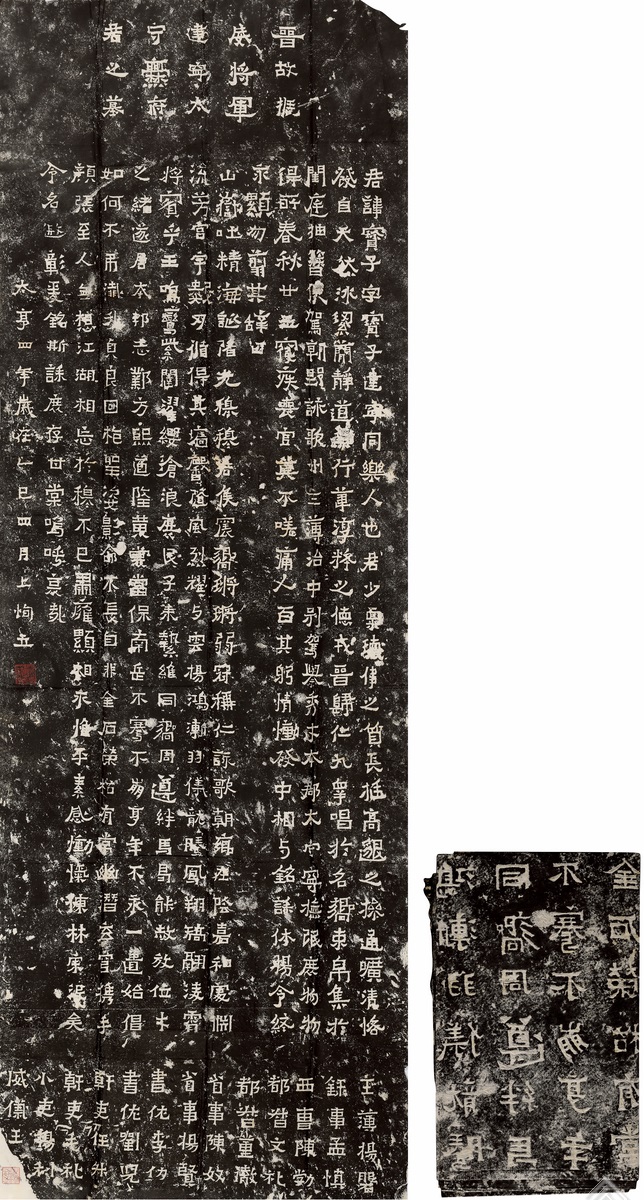 晉故振
威將軍
建寧太
守爨府
君之墓
君諱寶子字寶子建寧同樂人也君少稟瓌偉之質長挺高邈之操通曠清恪
發自天然冰絜簡靜道兼行葦淳粹之德戎晉歸仁九皋唱於名嚮束帛集於
閨庭抽簪俟駕朝野詠歌州主簿治中別駕舉秀才本郡太守寧撫氓庶物物
得所春秋廿五寢疾喪官莫不嗟痛人百其躬情慟發中相与銘誄休揚令終
永顯勿翦其辭曰
山嶽吐精海誔陼光穆穆君侯震嚮鏘鏘弱冠稱仁詠歌朝鄉在陰嘉和處淵
流芳宮宇數仞循得其牆馨隨風烈耀与雲揚鴻漸羽儀龍騰鳳翔矯翮凌霄
將賓乎王鳴鸞紫闥濯纓滄浪庶民子來縶維同嚮周遵絆馬曷能赦放位才
之緒遂居本邦志鄴方熙道隆黃裳當保南岳不騫不崩享年不永一匱始倡
如何不弔殲我貞良回抱聖姿影命不長自非金石榮枯有常幽潛玄穹攜手
顏張至人無想江湖相忘於穆不已肅雍顯相永惟平素感慟忾慷林宗沒矣
令名遐彰爰銘斯誄庶存甘棠嗚呼哀哉
太亨四年歲在乙巳四月上恂立
主簿楊磐
錄事孟慎
西曹陳勃
都督文礼
都督董徹
省事陳奴
省事楊賢
書佐李仂
書佐劉兒
幹吏任升
幹吏毛礼
小吏楊利
威儀王
金石榮枯有常
不騫不崩享年
同嚮周遵絆馬
鴻漸羽儀龍騰